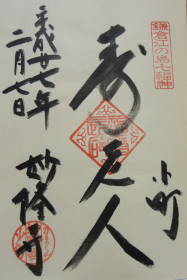 鎌倉江の島七福神
小町
寿老人
平成廿七年
二月七日
妙隆寺